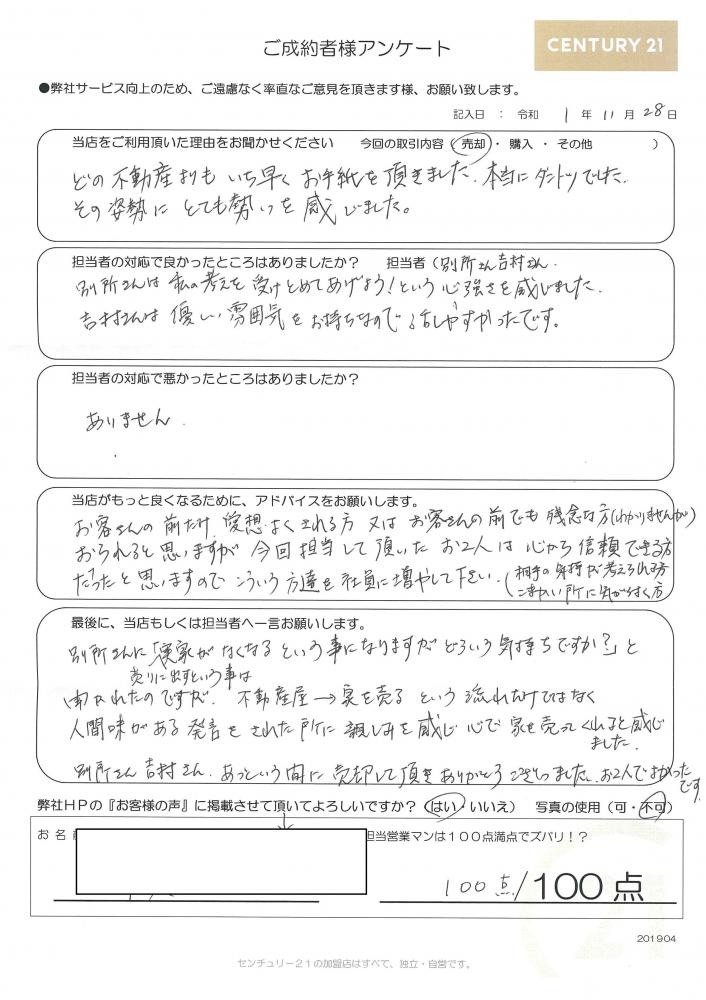 ご成約者様アンケート
CENTURY 21
●弊社サービス向上のため、ご遠慮なく率直なご意見を頂きます様、お願い致します。
記入日 : 令和 1 年 11 月 28 日
当店をご利用頂いた理由をお聞かせください 今回の取引内容（売却・購入・その他 ）
どの不動産よりもいち早くお手紙を頂きました。本当にダントツでした。
その姿勢にとても勢いを感じました。
担当者の対応で良かったところはありましたか？ 担当者（別所さん吉村さん.
別所さんは私の考えを受けとめてあげよう!という心強さを感じました.
吉村さんは優しい雰囲気をお持ちなので話しやすかったです。
担当者の対応で悪かったところはありましたか？
ありません.
当店がもっと良くなるために、アドバイスをお願いします。
お客さんの前だけ愛想よくされる方又はお客さんの前でも残念な方(わかりませんが)
おられると思いますが今回担当して頂いたお2人は心から信頼できる方
だったと思いますのでこういう方達を社員に増やして下さい.(相手の気持が考えられる方
こまかい所に気が付く方
最後に、当店もしくは担当者へ一言お願いします。
別所さんに「実家がなくなるという事になりますがどういう気持ちですか?」と
売りに出すという事は
聞かれたのですが.不動産屋→家を売るという流れだけではなく
人間味がある発言をされた所に親しみを感じ心で家を売ってくれると感じ
ました.
別所さん吉村さん.あっという間に売却して頂きありがとうございました.お2人でよかった
です
弊社HPの『お客様の声』に掲載させて頂いてよろしいですか？（はい・いいえ） 写真の使用（可・不可）
お名
担当営業マンは100点満点でズバリ！？
100点/100点
201904
センチュリー21の加盟店はすべて、独立・自営です。